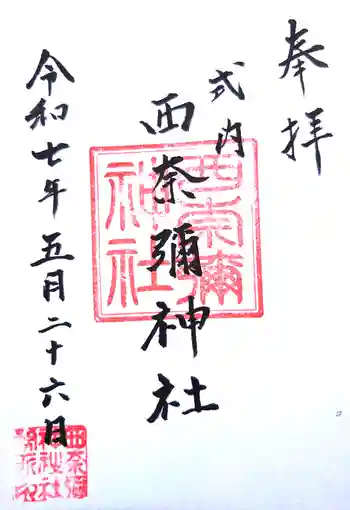 奉拝
式内
西奈彌神社
令和七年五月二十六日
西奈彌
神社